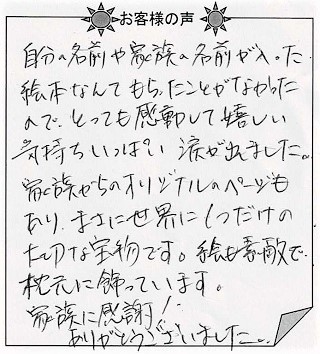 お客様の声
自分の名前や家族の名前が入った
絵本なんてもらったことがなかった
ので、とっても感動して嬉しい
気持ちいっぱい 涙が出ました。
家族からのオリジナルのページも
あり、まさに世界に1つだけの
大切な宝物です。絵も素敵で
枕元に飾っています。
家族に感謝!
ありがとうございました。